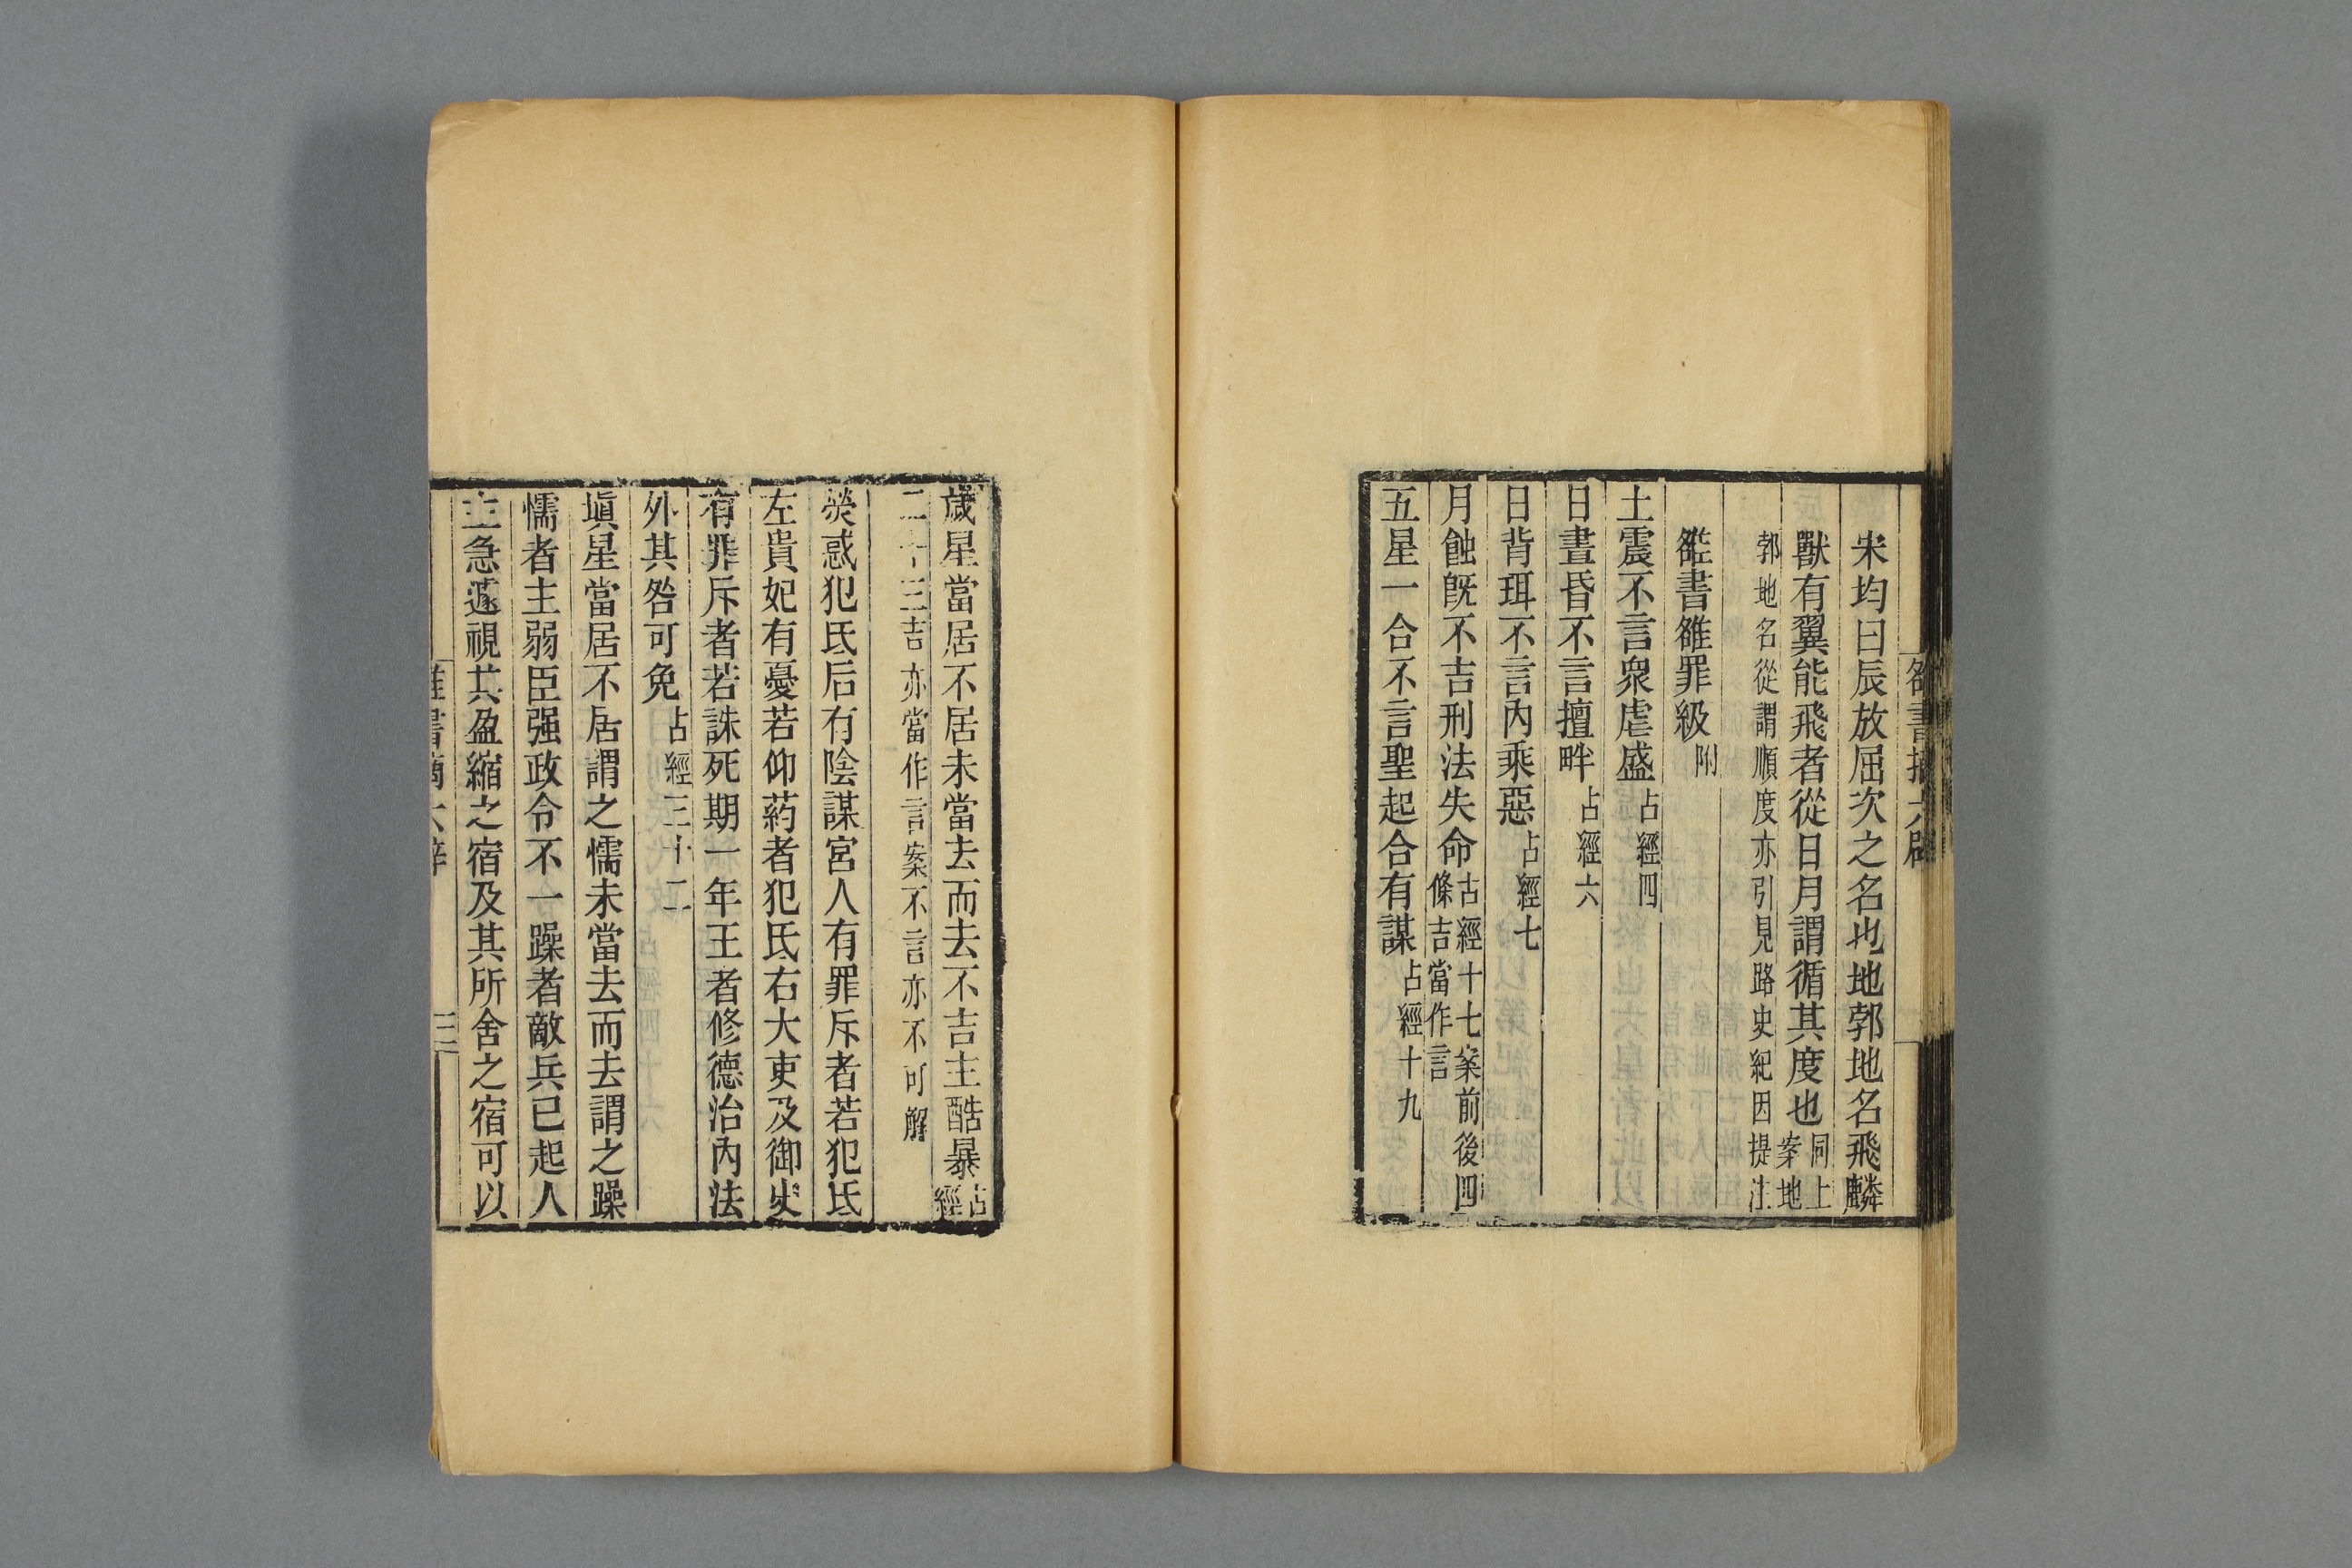 宋均曰辰放屈次之名也地郭地名飛麟
獸有翼能飛者從日月謂循其度也同上案地
郭地名從謂順度亦引見路史紀因提注
雒書雒罪級附
土震不言衆虐盛占經四
日晝昏不言擅畔占經六
日背珥不言內乘惡占經七
月蝕旣不吉刑法失命占經十七案前後四條吉當作言
五星一合不言聖起合有謀占經十九
歲星當居不居未當去而去不吉主酷暴占經
二十三吉亦當作言案不言亦不可解
熒惑犯氐后有陰謀宮人有罪斥者若犯氐
左貴妃有憂若仰葯者犯氐右大吏及御史
有罪斥者若誅死期一年王者修德治內法
外其咎可免占經三十二
塡星當居不居謂之懦未當去而去謂之躁
懦者主弱臣强政令不一躁者敵兵已起人
主急遽視其盈縮之宿及其所舍之宿可以
三